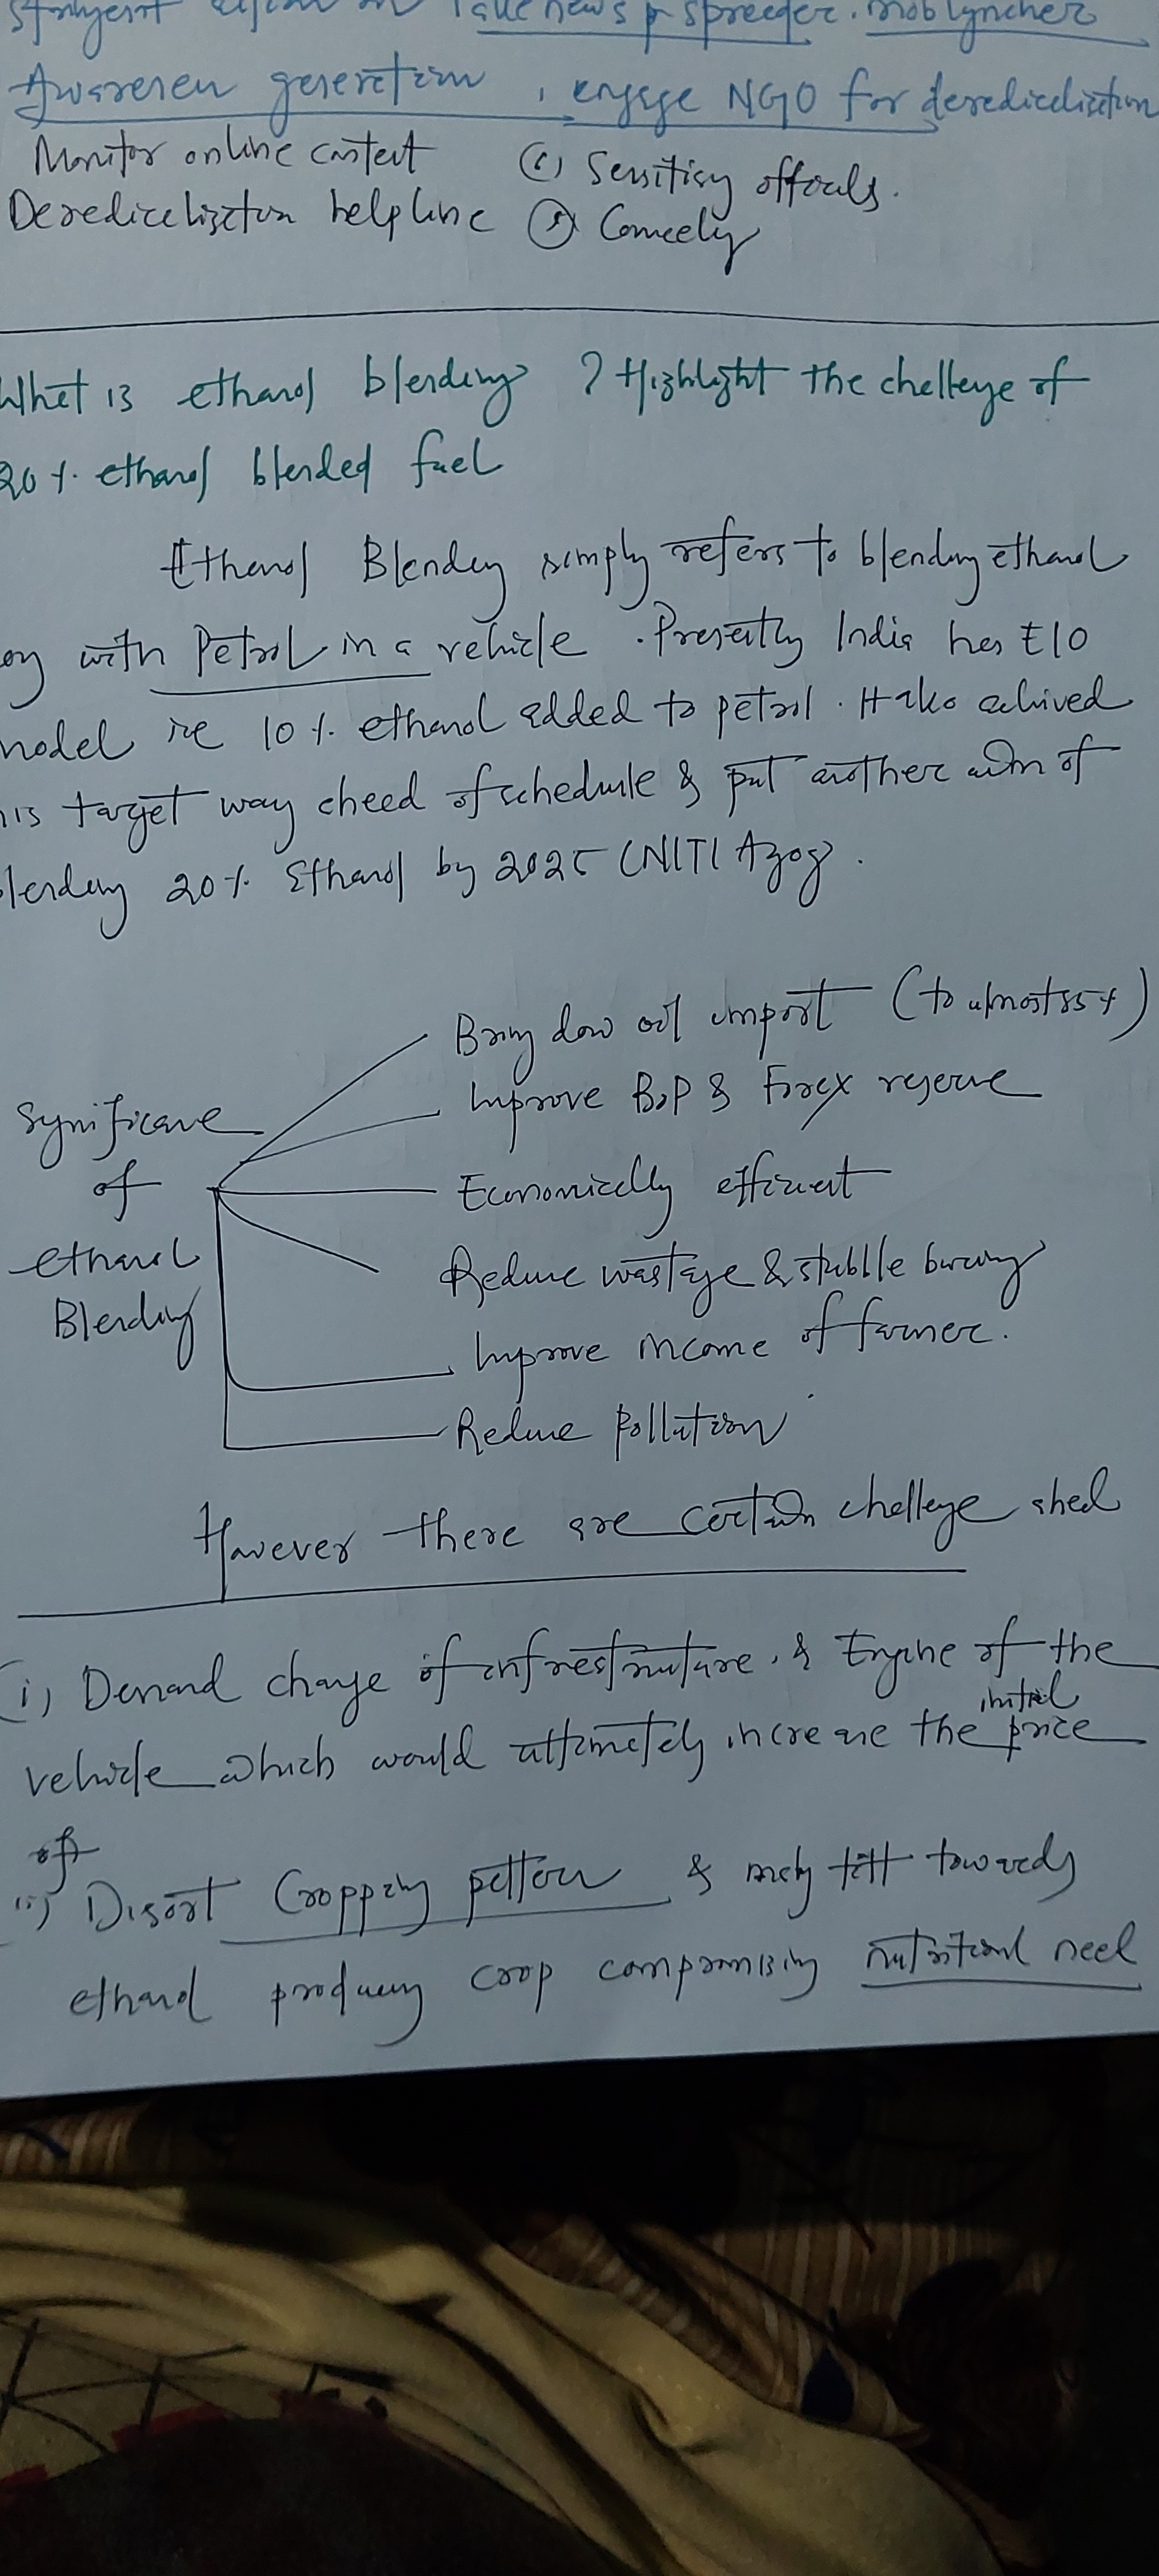 news & spreader. mob lyncher
Awareren generation, engage NGO for deredicelization
Monitor online content (c) Sensitisy officals.
Deredicelization helpline
What is ethanol blending? Highlight the challenge of
20% ethanol blended fuel
Ethanol Blending simply refers to blending ethanol
with Petrol in a vehicle. Presently India has E10
model ie 10% ethanol added to petrol. It also achived
target way ahead of schedule & put another aim of
20% Ethanol by 2025 (NITI Ayog).
Bring down oil import (to almost 85%)
Improve BoP & Forex reserve
Significance
of
Economically efficient
ethanol
Reduce wastage & stubble burning
Blending
Improve income of farmer.
Reduce Pollution
However there are certain challenge ahed
(i) Demand change of infrastructure & Engine of the
initial
vehicle which would ultimately increase the price
of
(ii) Distort Cropping pattern & may tilt towards
ethanol producing crop compromising nutritional need